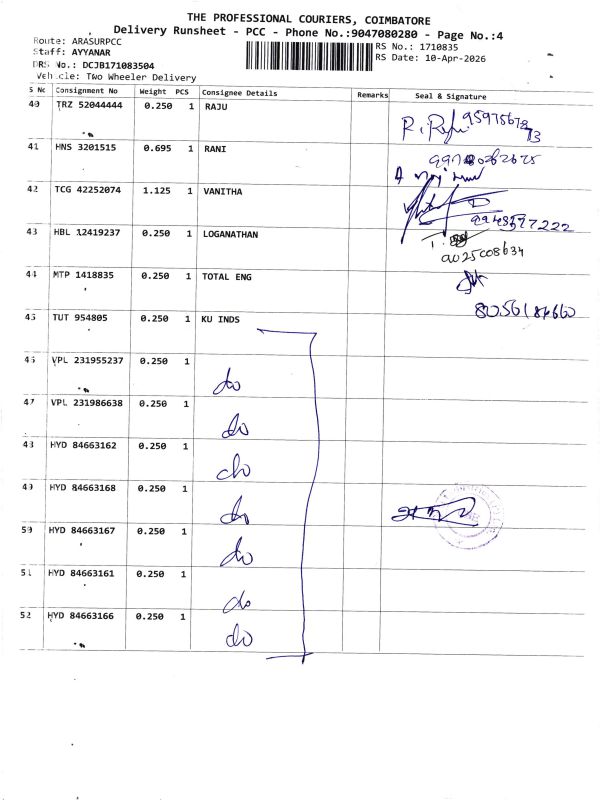 THE PROFESSIONAL COURIERS, COIMBATORE
Delivery Runsheet - PCC - Phone No.:9047080280 - Page No.:4
Route: ARASURPCC
Staff: AYYANAR
DRS No.: DCJB171083504
Vehicle: Two Wheeler Delivery
RS No.: 1710835
RS Date: 10-Apr-2026
S No Consignment No Weight PCS Consignee Details Remarks Seal & Signature
40 TRZ 52044444 0.250 1 RAJU
41 HNS 3201515 0.695 1 RANI
42 TCG 42252074 1.125 1 VANITHA
43 HBL 12419237 0.250 1 LOGANATHAN
9025008634
44 MTP 1418835 0.250 1 TOTAL ENG
45 TUT 954805 0.250 1 KU INDS
46 VPL 231955237 0.250 1 do
47 VPL 231986638 0.250 1 do
48 HYD 84663162 0.250 1 do
49 HYD 84663168 0.250 1 do
50 HYD 84663167 0.250 1 do
51 HYD 84663161 0.250 1 do
52 HYD 84663166 0.250 1 do